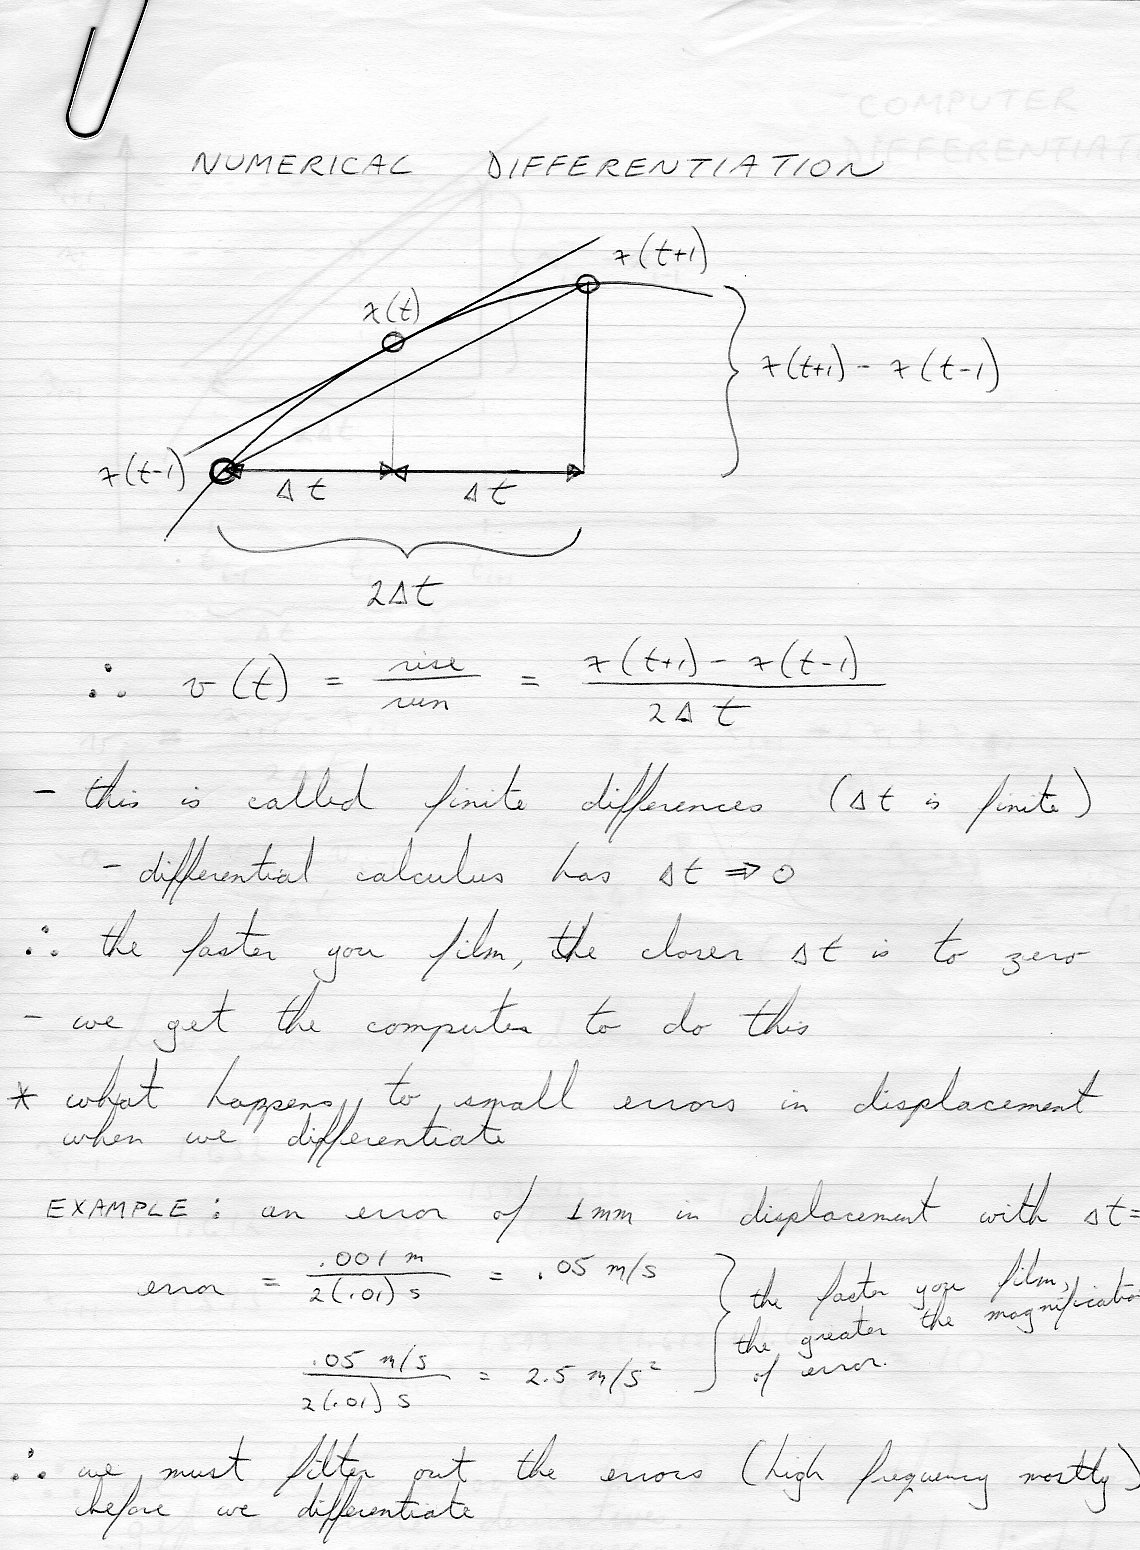 COMPUTER
DIFFERENTIAT
NUMERICAL DIFFERENTIATION
x(t+1)
x(t)
x(t+1) - x(t-1)
x(t-1)
Δt Δt
2Δt
∴ v(t) = rise/run = (x(t+1) - x(t-1))/(2Δt)
- this is called finite differences (Δt is finite)
- differential calculus has Δt ⇒ 0
∴ the faster you film, the closer Δt is to zero
- we get the computer to do this
* what happens to small errors in displacement
when we differentiate
EXAMPLE: an error of 1mm in displacement with Δt=
error = .001 m / 2(.01) s = .05 m/s
.05 m/s / 2(.01) s = 2.5 m/s²
the faster you film,
the greater the magnificatio
of error.
∴ we must filter out the errors (high frequency mostly)
before we differentiate